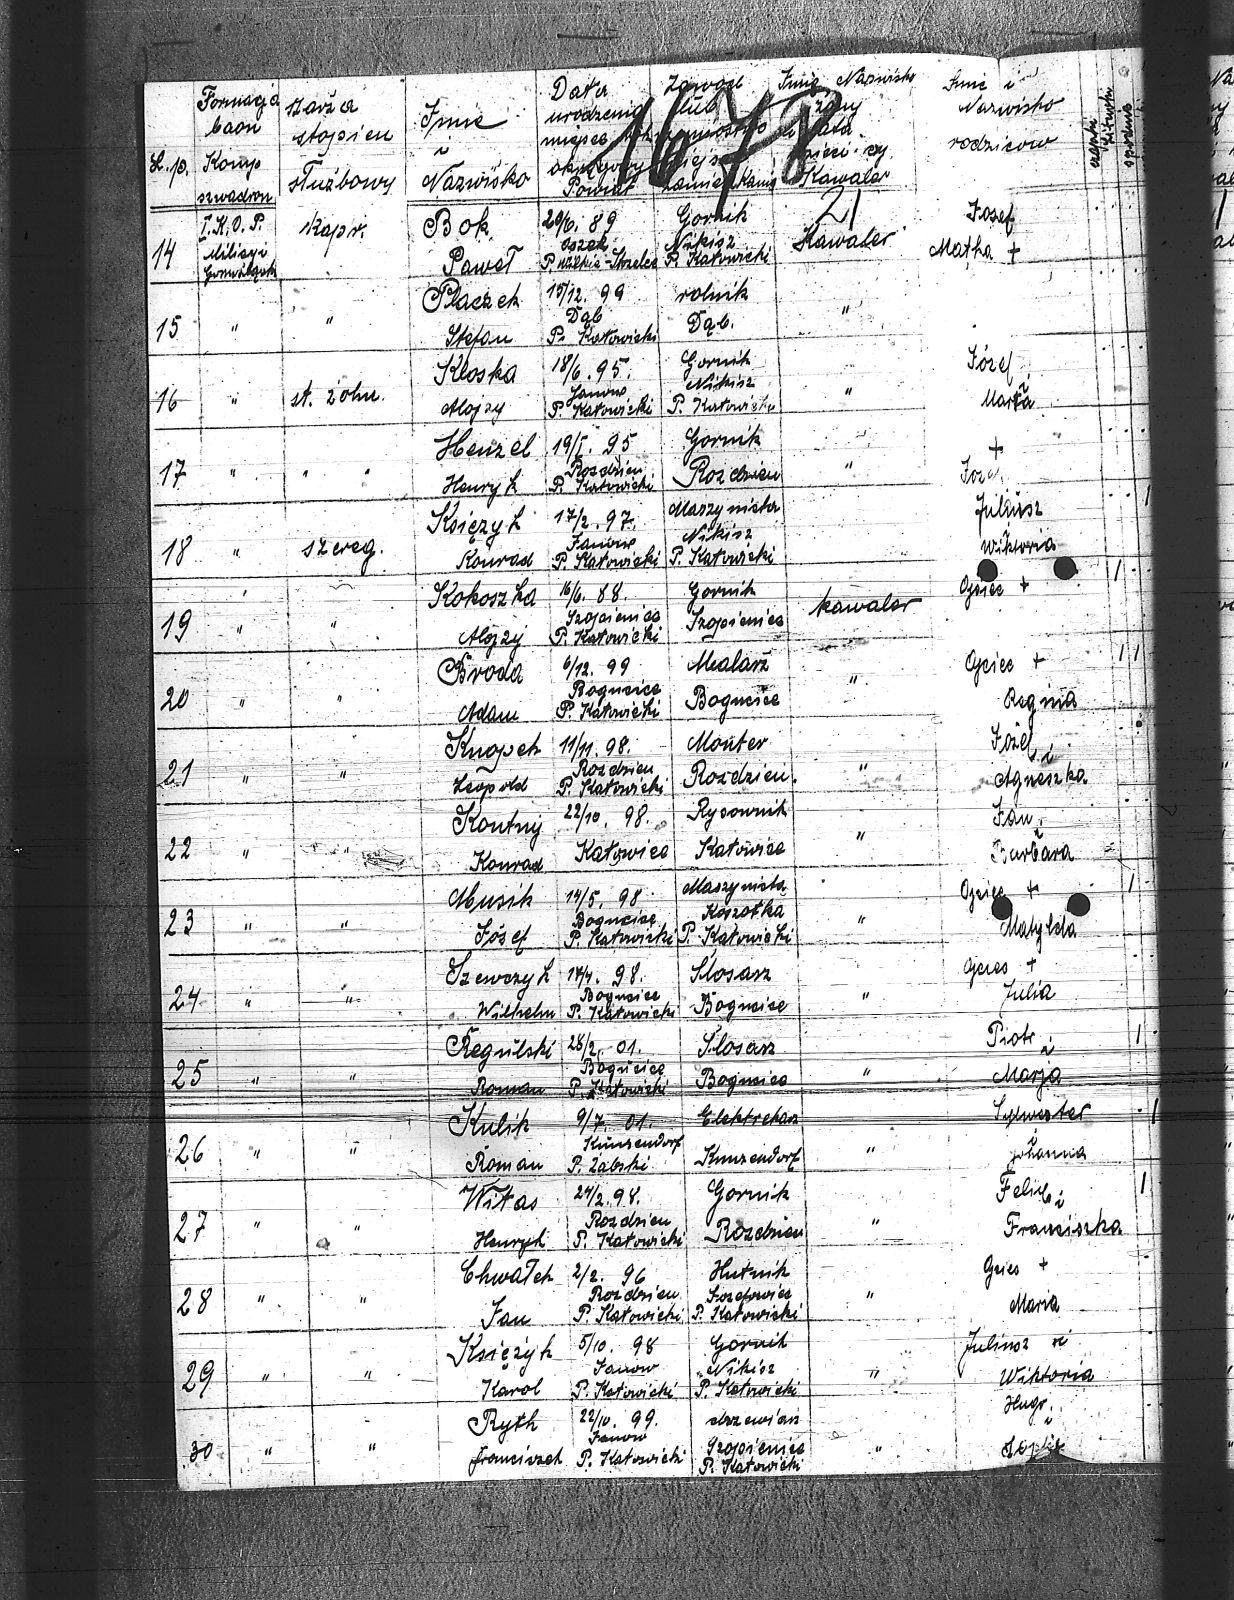 L.p.
Formacja
baon
Komp
szwadron
szarża
stopien
służbowy
Imie
i
Nazwisko
Data
urodzenia
miejsce
okręgowy
Powiat
Zawod
lub
miejsce
zamieszkania
Imie, Nazwisko
żony
data
dzieci czy
Kawaler
Imie i
Nazwisko
rodzicow
1678
21
14 I.K.O.P. kapr. Bok 29/6. 89 Gornik Kawaler Josef
Milicyi Paweł P. Strzelce Nikisz P. Katowicki Matka +
15 " " Placzek 15/12. 99 rolnik "
Stefan Dąb P. Katowicki Dąb.
16 " st. żołn. Kloska 18/6. 95. Gornik " Józef
Alojzy Janow P. Katowicki Nikisz P. Katowicki Marta
17 " " " Henzel 19/I. 95 Gornik " +
Henryk Rozdzien P. Katowicki Rozdzien Jozef
18 " szereg. Księżyk 17/2. 97. Maszynista Juliusz
Konrad Janow P. Katowicki Nikisz P. Katowicki Wiktoria
19 " " Kokoszka 16/6. 88. Gornik kawaler Ojciec +
Alojzy Szopienice P. Katowicki Szopienice
20 " " Broda 6/12. 99 Malarz " Ojciec +
Adam Bogucice P. Katowicki Bogucice Regina
21 " " Knopek 11/11. 98. Monter " Józef i
Leopold Rozdzien P. Katowicki Rozdzien. Agnieszka
22 " " Kontny 22/10. 98. Rysownik " Jan i
Konrad Katowice Katowice Barbara
23 " " Musik 14/5. 98 Maszynista " Ojciec +
Józef Bogucice P. Katowicki P. Katowicki Matylda
24 " " Szewczyk 98. Slosarz " Ojciec +
Wilhelm Bogucice P. Katowicki Bogucice Julia
25 " " Regulski 28/2. 01. Slosarz " Piotr i
Roman Bogucice P. Katowicki Bogucice Marja
26 " " Kulik 9/7. 01. Elektrekarz " Sylwester
Roman Kunzendorf P. Zabrski Kunzendorf i Johanna
27 " " Witas 24/2. 98. Gornik " Felix i
Henryk Rozdzien P. Katowicki Rozdzien Franciszka
28 " " Chwałek 2/2. 96 Hutnik " Ojciec +
Jan Rozdzien P. Katowicki Jozefowiec P. Katowicki Maria
29 " " Księżyk 5/10. 98 Gornik " Juliusz i
Karol Janow P. Katowicki Nikisz P. Katowicki Wiktoria
30 " " Ryth 22/10. 99. " Hugo i
Franciszek Janow P. Katowicki Szopienice P. Katowicki